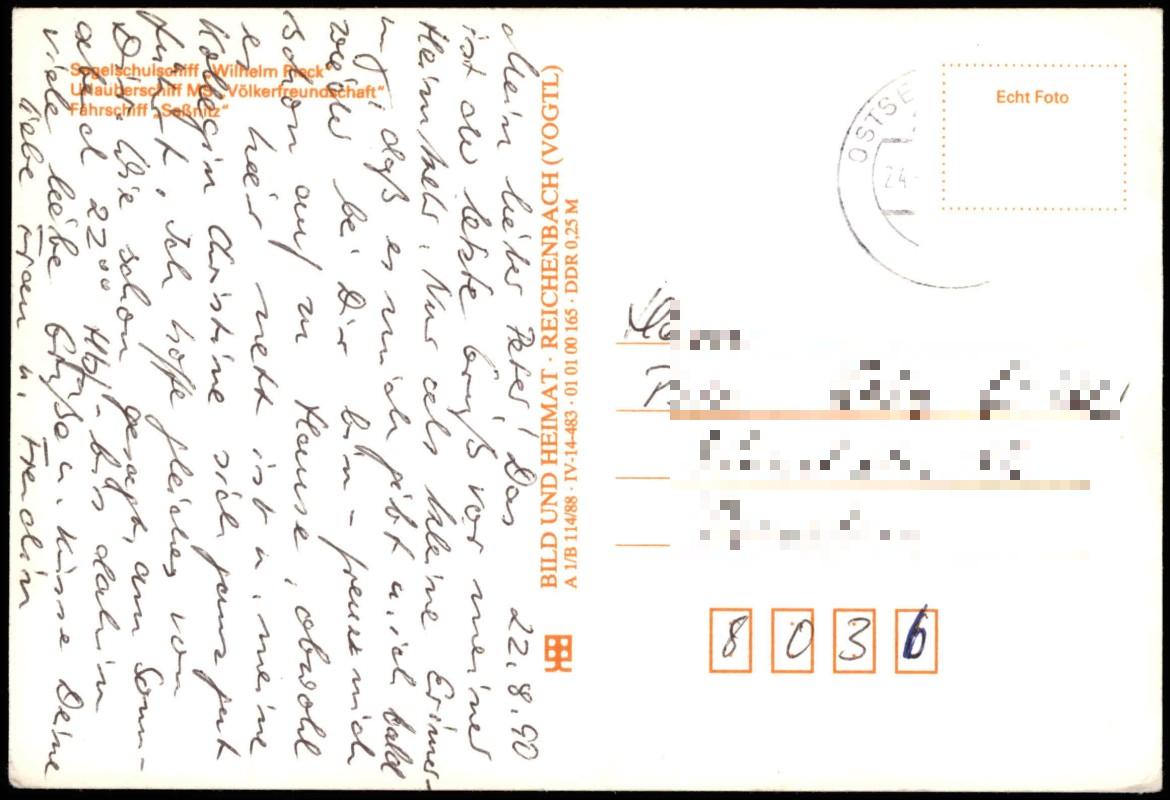 Segelschulschiff „Wilhelm Pieck“
Urlauberschiff MS „Völkerfreundschaft“
Fährschiff „Saßnitz“
22.8.90
Mein lieber Peter! Das
ist der letzte Gruß vor meiner
Heimkehr. Nur als kleine Erinner-
ung, daß es mich gibt u. ich bald
wieder bei Dir bin – freue mich
schon auf zu Hause, obwohl
es hier nett ist u. meine
Kollegin Christine sich ganz gut
fühlt. Ich hoffe gleiches von
Dir. Wie schon gesagt, am Sonn-
abend 22⁰⁰ Hbf – bis dahin
viele liebe Grüße u. Küsse Deine
liebe u. Freundin
BILD UND HEIMAT · REICHENBACH (VOGTL)
A 1/B 114/88 · IV-14-483 · 01 01 00 165 · DDR 0,25 M
Echt Foto
OSTSE
24.
8036